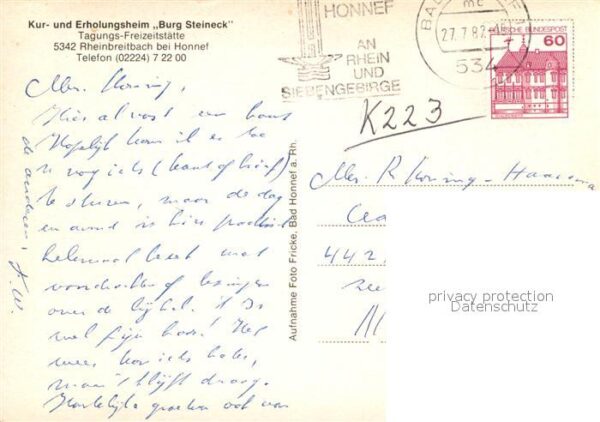 Kur- und Erholungsheim „Burg Steineck"
Tagungs-Freizeitstätte
5342 Rheinbreitbach bei Honnef
Telefon (02224) 7 22 00
HONNEF
AN
RHEIN
UND
SIEBENGEBIRGE
BAD
27.7.82
534
DEUTSCHE BUNDESPOST
60
K223
Mev. Koning,
Hier alvast een kaart
Mogelijk kom ik er toe
u nog iets (kaart of brief)
te sturen, maar de dag
en avond is hier
helemaal bezet met
lezingen
over de bijbel. Het is
wel fijn hoor! Het
weer,
maar 't blijft droog.
Hartelijke groeten ook aan
de anderen, F.W.
Aufnahme Foto Fricke, Bad Honnef a. Rh.
Mev. R Koning - Haasma
442
Al
privacy protection
Datenschutz